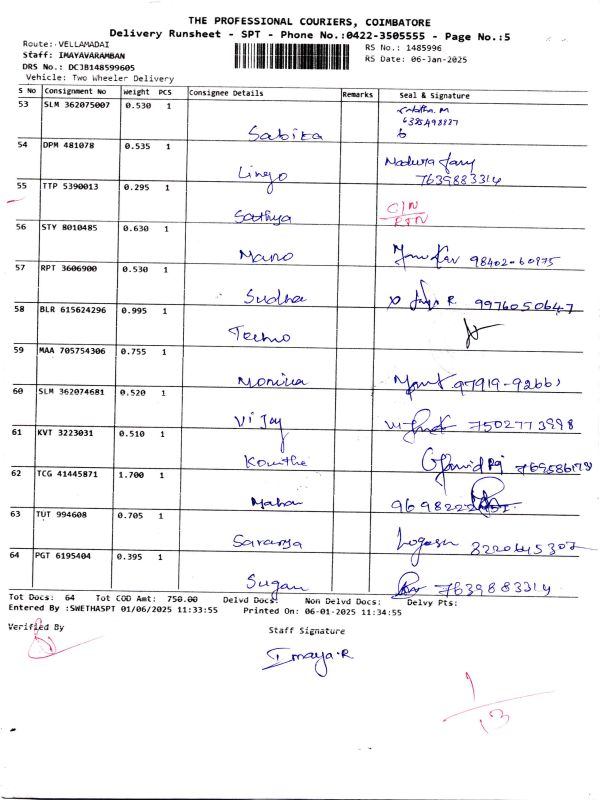 THE PROFESSIONAL COURIERS, COIMBATORE
Delivery Runsheet - SPT - Phone No.:0422-3505555 - Page No.:5
Route: VELLAMADAI
RS No.: 1485996
Staff: IMAYAVARAMBAN
RS Date: 06-Jan-2025
DRS No.: DCJB148599605
Vehicle: Two Wheeler Delivery
S No Consignment No Weight PCS Consignee Details Remarks Seal & Signature
53 SLM 362075007 0.530 1
Sabika
54 DPM 481078 0.535 1
Lingo
7639883314
55 TTP 5390013 0.295 1
Sathya
56 STY 8010485 0.630 1
Mano
98402-60975
57 RPT 3606900 0.530 1
Sudha
9976050647
58 BLR 615624296 0.995 1
Techno
59 MAA 705754306 0.755 1
Monika
60 SLM 362074681 0.520 1
Vijay
7502773998
61 KVT 3223031 0.510 1
62 TCG 41445871 1.700 1
63 TUT 994608 0.705 1
Saranya
Logesh
64 PGT 6195404 0.395 1
Sugan
7639883314
Tot Docs: 64 Tot COD Amt: 750.00 Delvd Docs: Non Delvd Docs: Delvy Pts:
Entered By :SWETHASPT 01/06/2025 11:33:55 Printed On: 06-01-2025 11:34:55
Verified By
Staff Signature
Imaya.R
1
13